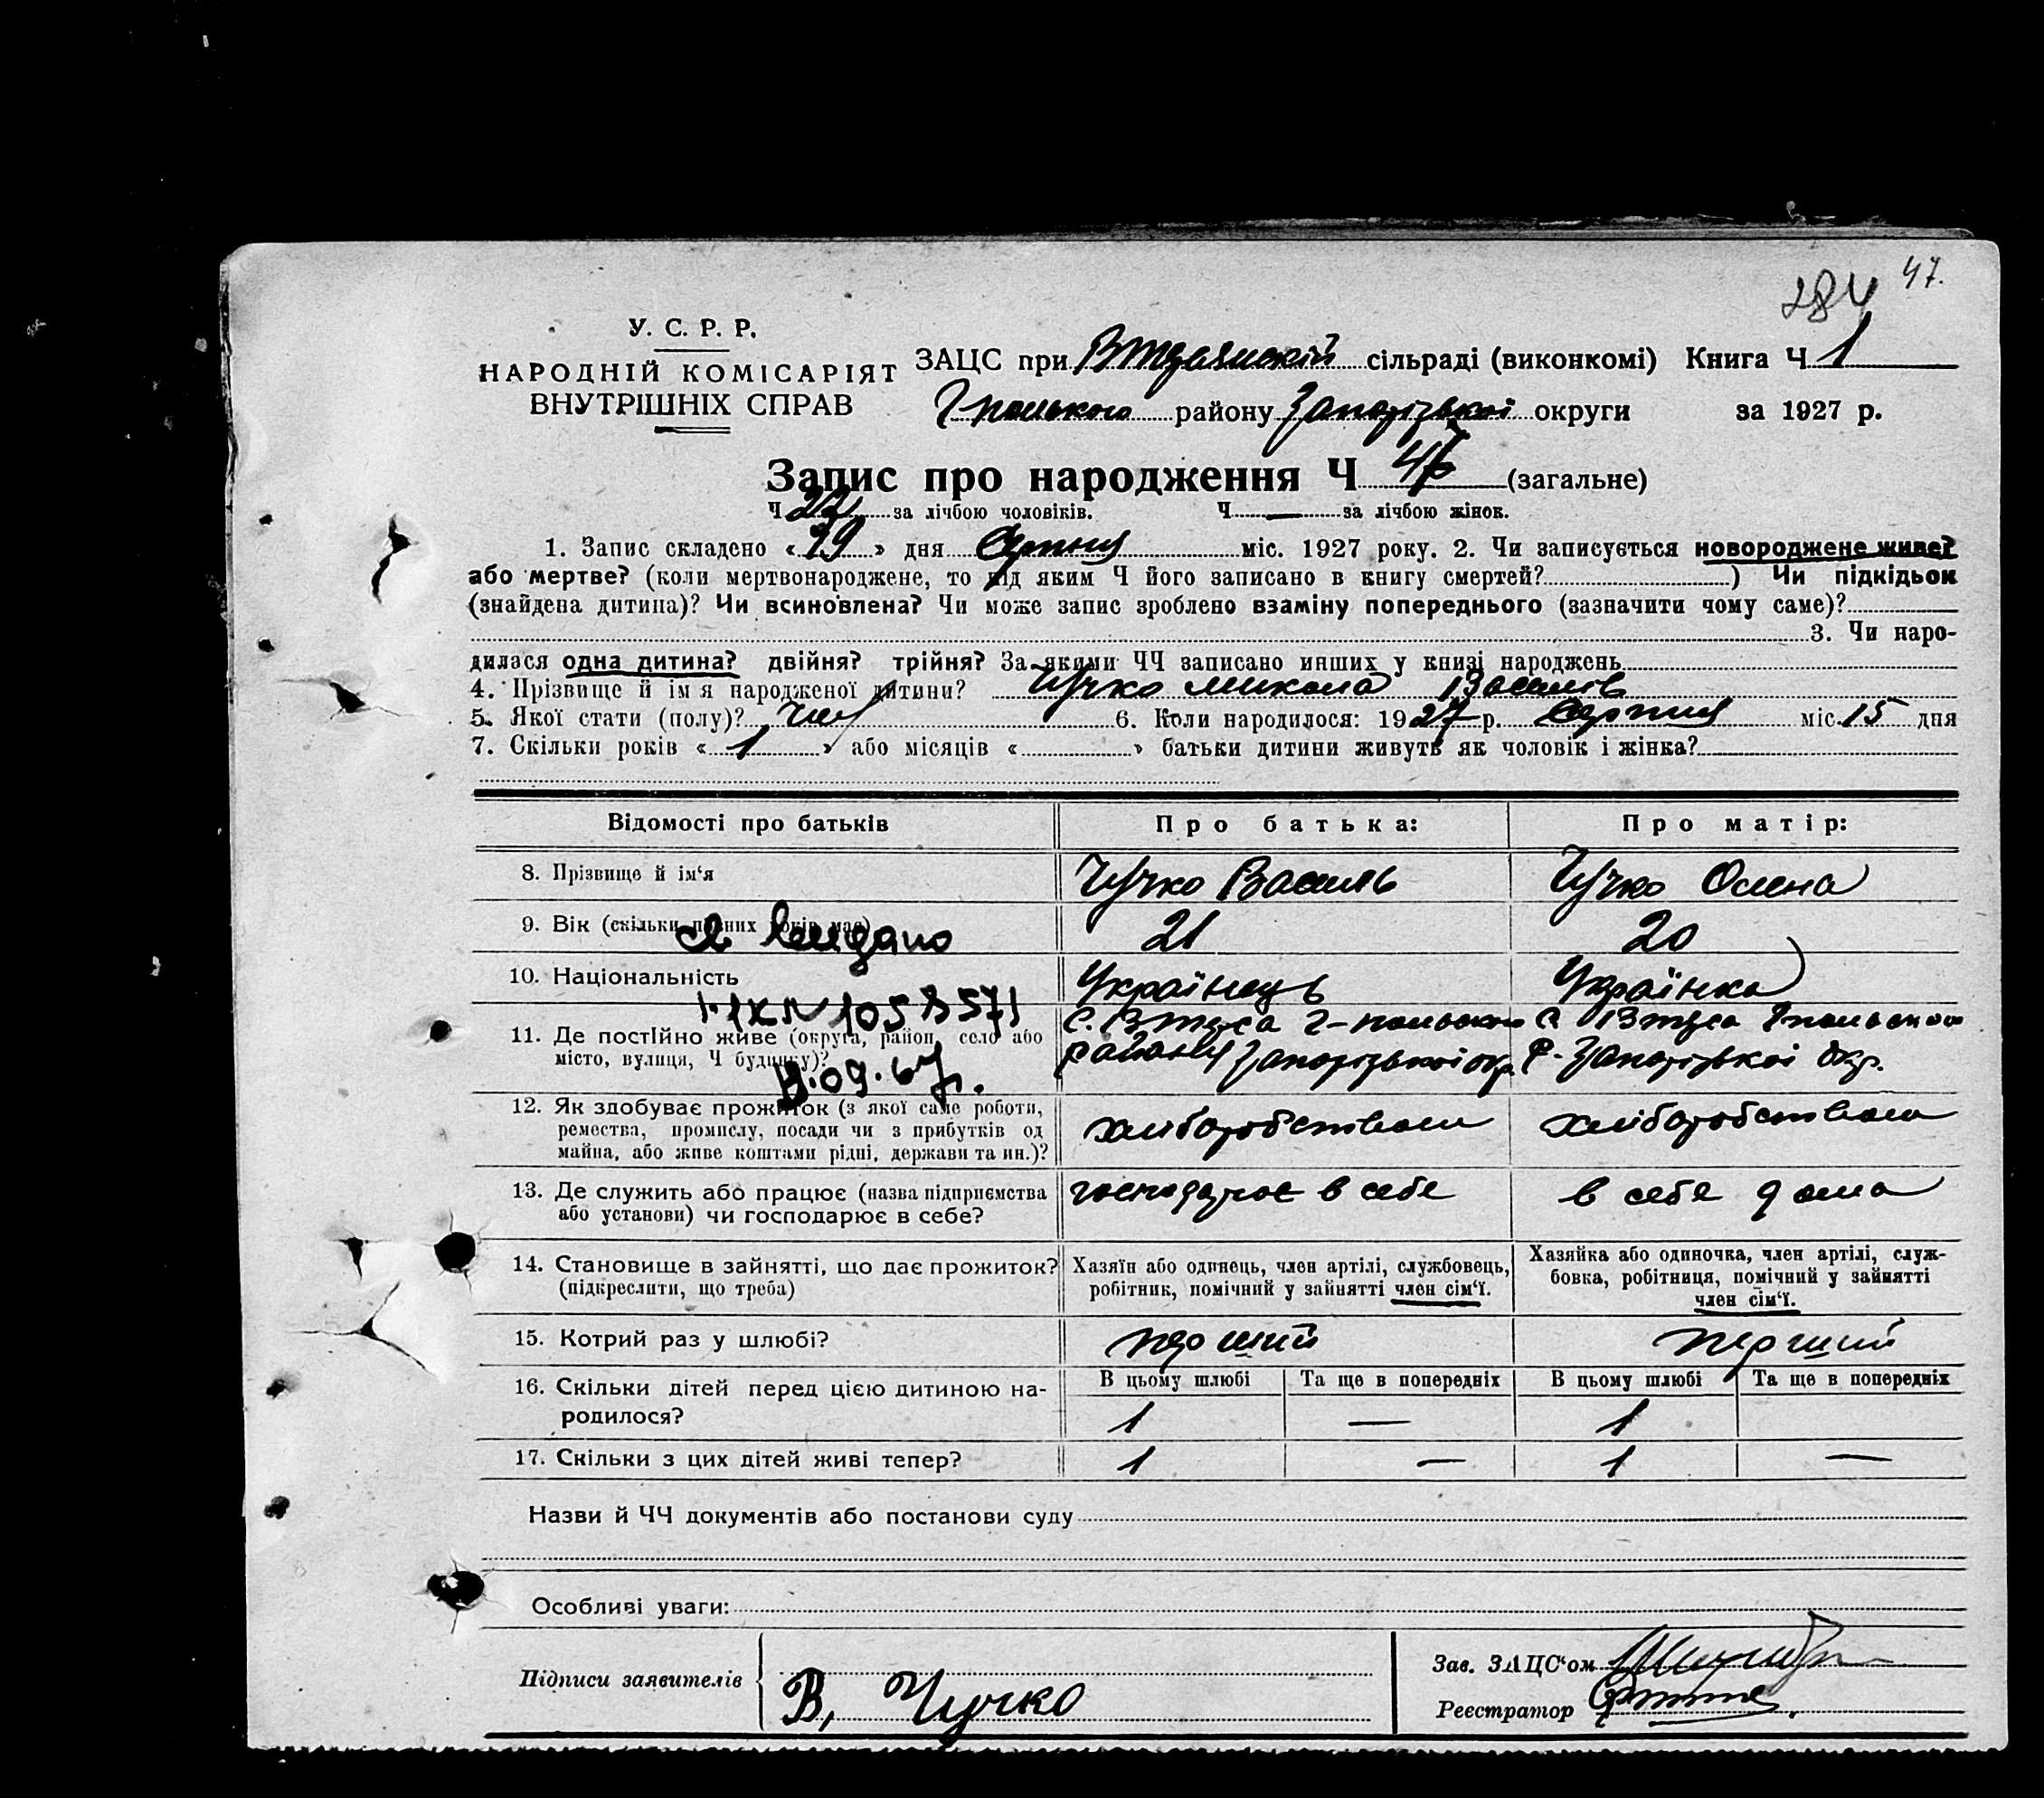 47.
284
У. С. Р. Р.
НАРОДНІЙ КОМІСАРІЯТ
ВНУТРІШНІХ СПРАВ
ЗАЦС при сільраді (виконкомі) Книга Ч 1
району Запорізької округи за 1927 р.
Запис про народження Ч (загальне)
Ч 22 за лічбою чоловіків. Ч — за лічбою жінок.
1. Запис складено « » дня Серпня міс. 1927 року. 2. Чи записується новороджене живе?
або мертве? (коли мертвонароджене, то під яким Ч його записано в книгу смертей? ) Чи підкідьок
(знайдена дитина)? Чи всиновлена? Чи може запис зроблено взаміну попереднього (зазначити чому саме)?
3. Чи наро-
дилася одна дитина? двійня? трійня? За якими ЧЧ записано инших у книзі народжень
4. Прізвище й ім'я народженої дитини? Чучко Микола Василів
5. Якої стати (полу)? чол 6. Коли народилося: 1927 р. Серпня міс. 15 дня
7. Скільки років « 1 » або місяців « » батьки дитини живуть як чоловік і жінка?
Відомості про батьків Про батька: Про матір:
8. Прізвище й ім'я Чучко Василь Чучко Олена
9. Вік (скільки повних років має) 21 20
Св видано
10. Національність Українець Українка
11. Де постійно живе (округа, район, село або
місто, вулиця, Ч будинку)?
с. району Запорізької окр.
Запорізької Окр.
09.67р.
12. Як здобуває прожиток (з якої саме роботи,
ремества, промислу, посади чи з прибутків од
майна, або живе коштами рідні, держави та ин.)?
хліборобством хліборобством
13. Де служить або працює (назва підприємства
або установи) чи господарює в себе?
господарює в себе в себе дома
14. Становище в зайнятті, що дає прожиток?
(підкреслити, що треба)
Хазяїн або одинець, член артілі, службовець,
робітник, помічний у зайнятті член сім'ї.
Хазяйка або одиночка, член артілі, служ-
бовка, робітниця, помічний у зайнятті
член сім'ї.
15. Котрий раз у шлюбі? перший перший
16. Скільки дітей перед цією дитиною на-
родилося?
В цьому шлюбі Та ще в попередніх В цьому шлюбі Та ще в попередніх
1 — 1
17. Скільки з цих дітей живі тепер? 1 — 1 —
Назви й ЧЧ документів або постанови суду
Особливі уваги:
Підписи заявителів В, Чучко
Зав. ЗАЦС'ом
Реєстратор